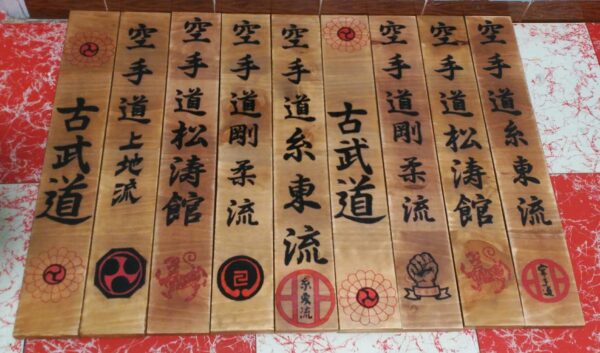 古武道
空手道上地流
空手道松涛館
空手道剛柔流
空手道糸東流
糸東流
古武道
空手道剛柔流
空手道松涛館
空手道糸東流
空手道